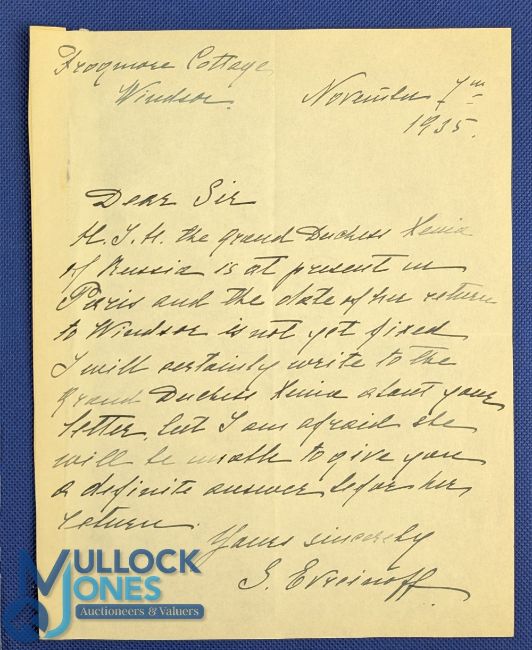 Frogmore Cottage
Windsor.
November 7th
1935.
Dear Sir
H. I. H. the Grand Duchess Xenia
of Russia is at present in
Paris and the date of her return
to Windsor is not yet fixed
I will certainly write to the
Grand Duchess Xenia about your
letter, but I am afraid she
will be unable to give you
a definite answer before her
return.
Yours sincerely
MULLOCK
JONES
Auctioneers & Valuers